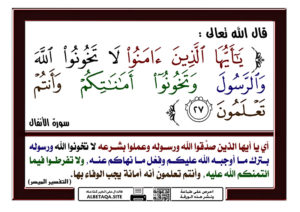 قال الله تعالى :
﴿ يَٰٓأَيُّهَا ٱلَّذِينَ ءَامَنُوا۟ لَا تَخُونُوا۟ ٱللَّهَ
وَٱلرَّسُولَ وَتَخُونُوٓا۟ أَمَٰنَٰتِكُمْ وَأَنتُمْ
تَعْلَمُونَ ٢٧ ﴾
سورة الأنفال
أي يا أيها الذين صدَّقوا الله ورسوله وعملوا بشرعه لا تخونوا الله ورسوله
بترك ما أوجبه الله عليكم وفعل ما نهاكم عنه، ولا تفرطوا فيما
ائتمنكم الله عليه، وأنتم تعلمون أنه أمانة يجب الوفاء بها.
( التفسير الميسر )
ALBETAQA.SITE